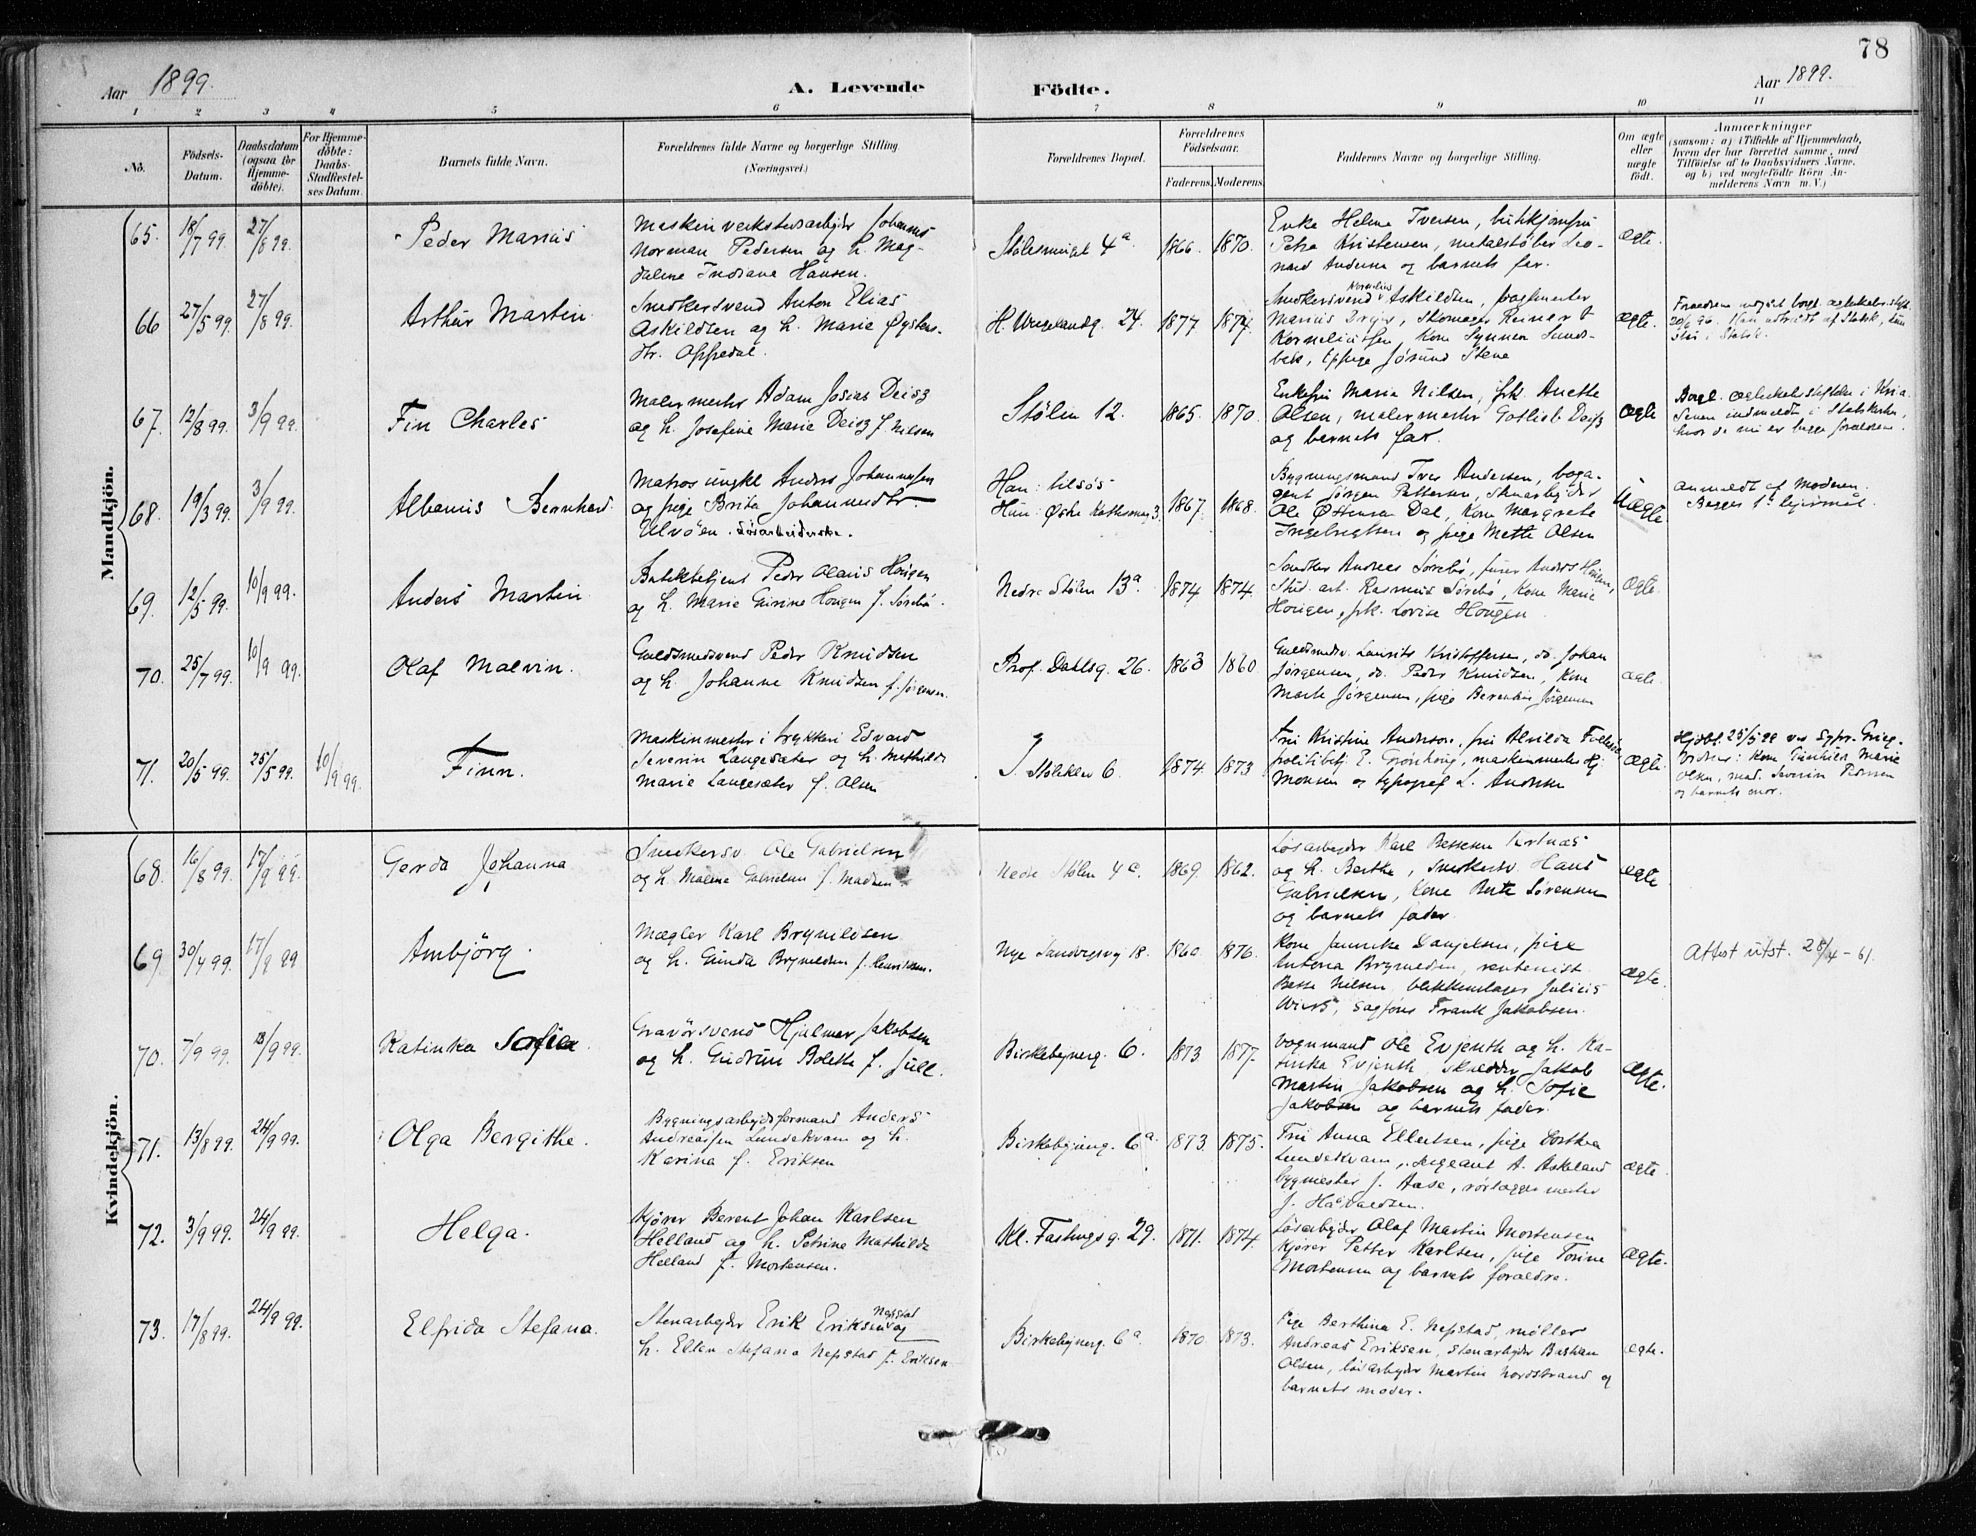 78
Aar 1899.
A. Levende Födte.
Aar 1899.
1 2 3 4 5 6 7 8 9 10 11
No.
Födsels-Datum.
Daabsdatum (ogsaa for Hjemmedöbte).
For Hjemmedöbte: Daabs-Stadfæstelses Datum.
Barnets fulde Navn.
Forældrenes fulde Navne og borgerlige Stilling
(Næringsvei.)
Forældrenes Bopæl.
Forældrenes Födselsaar.
Faderens. Moderens.
Faddernes Navne og borgerlige Stilling.
Om ægte eller uægte födt.
Anmærkninger
(saasom: a) i Tilfælde af Hjemmedaab,
hvem der har forrettet samme, med
Tilföielse af to Daabsvidners Navne,
og b) ved uægtefödte Börn Anmelderens Navn m. V.)
Mandkjön.
65. 18/7 99. 27/8 99.
Peder Marius
Maskinverkstedsarbejder Johannes
Norman Pedersen og h. Mag-
dalene Indiane Hansen.
4a 1866. 1870.
Enke Helene Iversen,
Petra Kristensen, metalstøber Leo-
nard Andersen og barnets far.
ægte.
66 27/5 99. 27/8 99.
Arthur Martin
Snedkersvend Anton Elias
Askildsen og h. Marie Øystens-
dtr. Oppedal.
H. Wergelandsg. 24. 1877. 1874.
Snedkersvend Kornelius Askildsen,
Marius
Kone Synneva Sunds-
bak, Jøsund Stene
ægte.
67. 12/8 99. 3/9 99.
Fin Charles
Malermester Adam Josias Deisz
og h. Josefine Marie Deisz f. Nilsen
Stølen 12. 1865. 1870.
Enkefru Maria Nilsen, frk. Anette
Olsen, malermester Gotlieb Deisz
og barnets far.
ægte
68. 19/3 99. 3/9 99.
Albanus Bernhard
Matros ungkl Anders Johannesen
og pige Brita Johannesdtr.
Ulvöen. Løsarbeiderske.
Han: tilsøs
Hun: Øvre 3 1867. 1868.
Bygningsmand Iver Andersen, boga-
gent Jørgen Pettersen, Skoarbejder
Ole Østensen Dal, Kone Margrete
Ingebrigtsen og pige Mette Olsen
Uægte
anmeldt af Moderen.
Begges 1ste lejermål.
69. 12/5 99. 10/9 99.
Anders Martin
Butikbetjent Peder Olaus Hougen
og h. Marie Gurine Hougen f. Sørebø.
Nedre Stølen 13a 1874 1874.
Snedker Andreas Sørebø, Anders Hougen,
Stud. art. Rasmus Sørebø, Kone Marie
Hougen, frk. Lovise Hougen
Ægte.
70. 25/7 99. 10/9 99.
Olaf Malvin.
Guldsmedsvend Peder Knudsen
og h. Johanne Knudsen f. Jørgensen.
Prof. Dahlsg. 26. 1863 1860
Guldsmedsv. Laurits Kristoffersen, do. Johan
Jørgensen, do. Peder Knudsen, Kone
Marte Jørgensen, pige Berentine Jørgensen
ægte.
71. 20/5 99. 25/5 99. 10/9 99.
Finn.
Maskinmester i trykkeri Edvard
Severin Langesæter og h. Mathilde
Marie Langesæter f. Olsen
Støleklev 6. 1874. 1873
Fru Kristine Andersen, fru Alvilda
politibtj. E. Grönhoug, maskinmester Hj.
Monsen og typograf L. Andersen
Ægte.
Hjdbt. 25/5 99 ved Grieg.
Vidner: Kone Marie
Olsen, mad. Severine Pedersen
og barnets mor.
Kvindekjön.
68. 16/8 99. 17/9 99.
Gerda Johanna
Snedkersv. Ole Gabrielsen
og h. Malene Gabrielsen f. Madsen
Nedre Stølen 4c. 1869. 1862.
Løsarbejder Karl Bessesen
og h. Berthe, snedkersv. Hans
Gabrielsen, Kone Berte Sørensen
og barnets fader
ægte
69. 30/4 99. 17/9 99
Ambjörg.
Mægler Karl Brynildsen
og h. Gunda Brynildsen f. Henriksen.
Nye Sandvigsvej 18. 1860. 1876.
Kone Jannike Danjelsen, pige
Antona Brynildsen, rentenist
Besse Nilsen, blikkenslager Julius
Frantz Jakobsen.
Ægte.
Attest utst. 28/4-61.
70. 7/9 99. 18/9 99.
Katinka Sofie
Gravörsvend Hjalmar Jakobsen
og h. Gudrun Bolette f. Jull.
Birkebejnerg. 6. 1873 1877.
Vognmand Ole Evjenth og h. Ka-
tinka Evjenth, skrædder Jakob
Martin Jakobsen og h. Sofie
Jakobsen og barnets fader.
Ægte.
71. 13/8 99. 24/9 99.
Olga Bergithe.
Bygningsarbejdsformand Anders
Andreassen Lundekvam og h.
Karina f. Eriksen
Birkebejnerg. 6a. 1873 1875.
Fru Anna Ellertsen, pige Dorthea
Lundekvam, sergeant A. Askeland
bygmester J. Aase, rørlæggermester
J. Håvaldsen.
ægte.
72. 3/9 99. 24/9 99.
Helga.
Kjører Berent Johan Karlsen
Helland og h. Petrine Mathilde
Helland f. Mortensen.
Kl. Fastingsg. 29. 1871. 1874.
Løsarbejder Olaf Martin Mortensen
Kjører Petter Karlsen, pige Torine
Mortensen og barnets forældre.
Ægte.
73. 17/8 99. 24/9 99.
Elfrida Stefana.
Stenarbejder Erik Eriksen Nepstad og
h. Ellen Stefana Nepstad f. Eriksen
Birkebejnerg. 6a. 1870. 1873.
Pige Berthina E. Nepstad, møller
Andreas Eriksen, stenarbejder Bastian
Olsen, løsarbejder Martin Nordstrand og
barnets moder.
ægte.